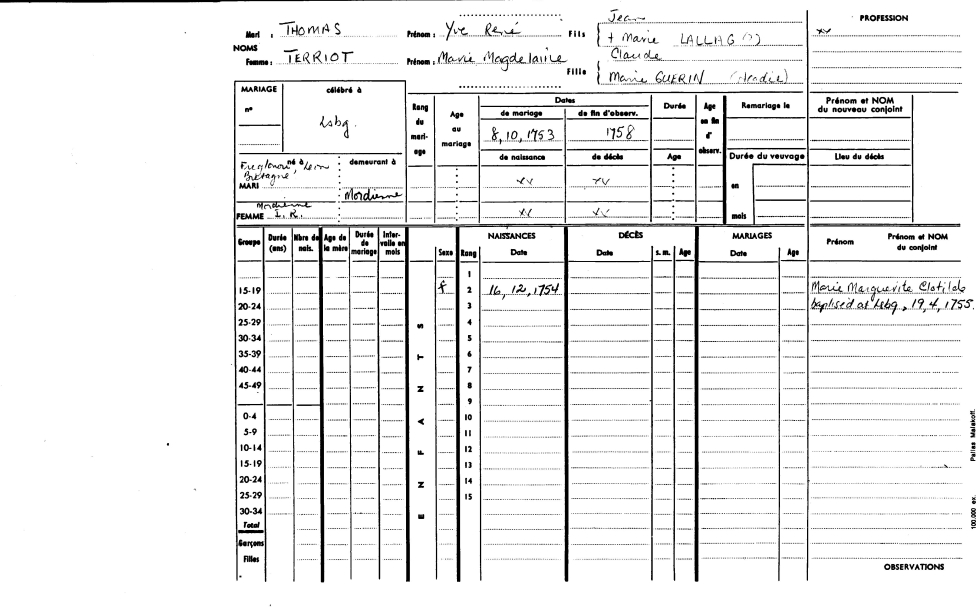 Mari : THOMAS Prénom : Yve René Fils Jean
+ Marie LALLIAG (?)
NOMS
Femme : TERRIOT Prénom : Marie Magdelaine Fille Claude
Marie GUERIN (Acadie)
PROFESSION
xx
MARIAGE célébré à
n°
Lsbg.
né à demeurant à
Léon
Bretagne
MARI
Mordienne
Mordienne
FEMME I. R.
Rang du mari- age
Age au mariage
Dates
de mariage de fin d'observ.
8, 10, 1753 1758
de naissance de décès
xx xx
xx xx
Durée
Age
Age en fin d' observ.
Remariage le
Durée du veuvage
en
mois
Prénom et NOM du nouveau conjoint
Lieu du décès
Groupe Durée (ans) Nbre de nais. Age de la mère Durée de mariage Inter- valle en mois
ENFANTS
Sexe Rang NAISSANCES Date DÉCÈS Date s. m. Age MARIAGES Date Age Prénom Prénom et NOM du conjoint
1
15-19 f 2 16, 12, 1754 Marie Marguerite Clotilde
20-24 3 baptised at Lsbg, 19, 4, 1755.
25-29 4
30-34 5
35-39 6
40-44 7
45-49 8
9
0-4 10
5-9 11
10-14 12
15-19 13
20-24 14
25-29 15
30-34
Total
Garçons
Filles
OBSERVATIONS
100.000 ex. Pallas Malakoff.